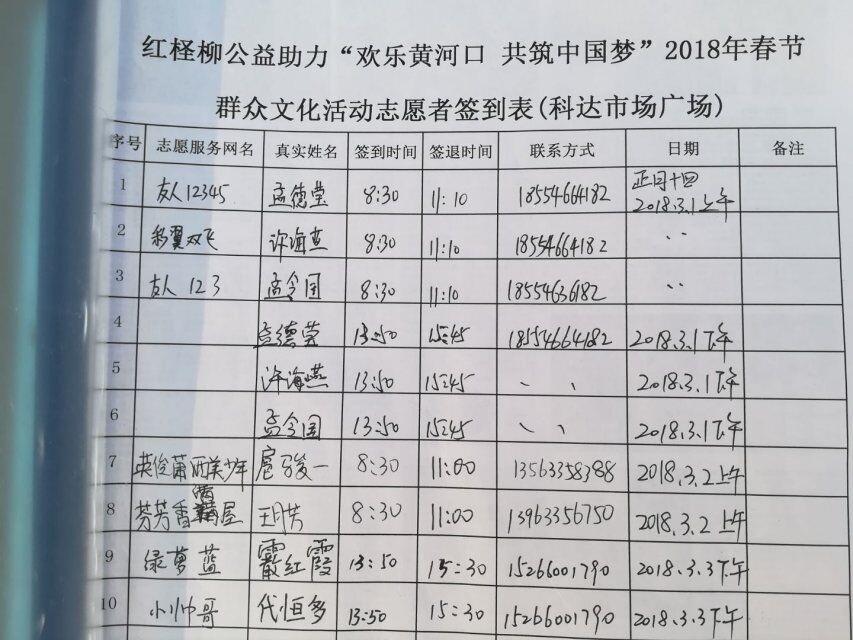 红柽柳公益助力“欢乐黄河口 共筑中国梦”2018年春节
群众文化活动志愿者签到表(科达市场广场)
序号 志愿服务网名 真实姓名 签到时间 签退时间 联系方式 日期 备注
1 友人12345 孟德莹 8:30 11:10 18554664182 正月十四 2018.3.1上午
2 双飞 许海燕 8:30 11:10 18554664182 〃
3 友人 123 孟令国 8:30 11:10 18554636182 〃
4 孟德莹 13:50 15:45 18554664182 2018.3.1下午
5 许海燕 13:50 15:45 、 、 2018.3.1下午
6 孟令国 13:50 15:45 、 、 2018.3.1下午
7 英俊莆丽美少年 骏一 8:30 11:00 13563358388 2018.3.2上午
8 芳芳香满屋 王月芳 8:30 11:00 13963356750 2018.3.2上午
9 绿萝蓝 红霞 13:50 15:30 15266001790 2018.3.3下午
10 小帅哥 代恒多 13:50 15:30 15266001790 2018.3.3下午